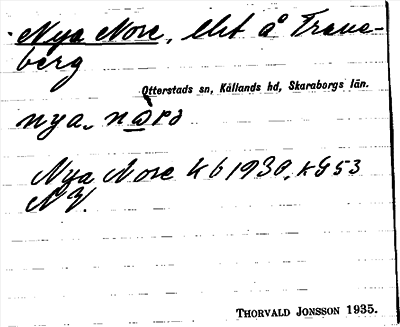 Nya Nore, lht å Trane-
berg
Otterstads sn, Kållands hd, Skaraborgs län.
nya
Nya Nore Kb 1930, KG53
NV.
THORVALD JONSSON 1935.